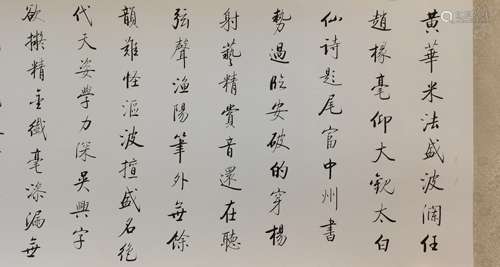 黄華米法盛波瀾任
趙椽毫仰大觀太白
仙诗題尾富中州書
勢過臨安破的穿楊
射藝精賞音還在聽
弦聲漁陽筆外無餘
韻難怪漚波擅盛名絕
代天姿學力深吳興字
欲擬精金纖毫滲漏無